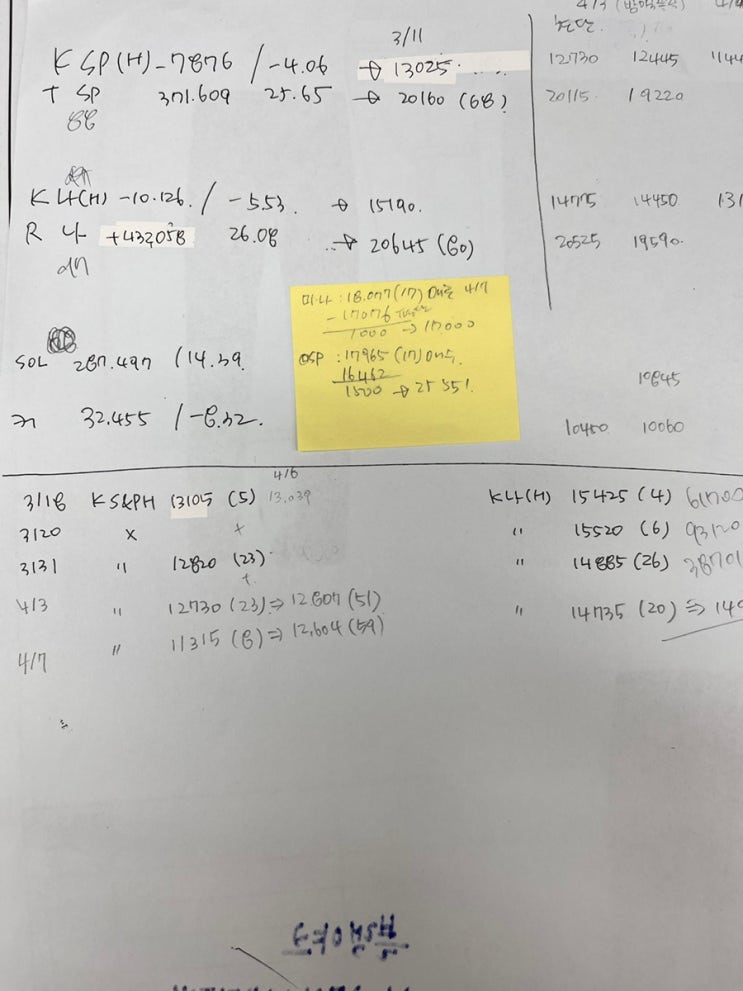 3/11
K SP(H) -7876 / -4.06 → 13025
T SP 371.609 25.65 → 20160 (68)
K 나(H) -10.126 / -5.53 → 15190.
R 나 +432,058 26.08 → 20645 (60)
SOL 287.497 (14.39
32.455 / -8.32.
4/3
12730 12445
20115 19220
14775 14450
20525 19590
10845
10450 10060
미나 : 18.077 (17) 매도 4/7
- 17076
1000 → 17000
OSP : 17965 (17) 매도
16462
1500 → 25
4/6
3/18 K S&PH 13105 (5) 13.039
3/20 x x
3/31 〃 12820 (23)
4/3 〃 12730 (23) ⇒ 12807 (51)
4/7 〃 11315 (8) ⇒ 12,604 (59)
K나(H) 15425 (4) 61700
〃 15520 (6) 93120
〃 14885 (26)
〃 14735 (20) ⇒